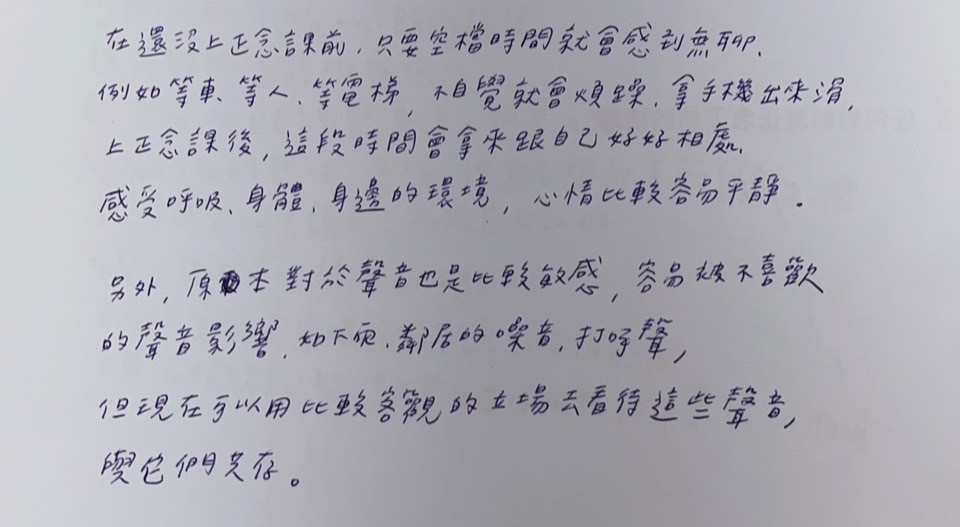 在還沒上正念課前，只要空檔時間就會感到無聊、
例如等車、等人、等電梯，不自覺就會煩躁、拿手機出來滑，
上正念課後，這段時間會拿來跟自己好好相處、
感受呼吸、身體、身邊的環境，心情比較容易平靜。
另外，原本對於聲音也是比較敏感，容易被不喜歡
的聲音影響，如下雨、鄰居的噪音、打呼聲，
但現在可以用比較客觀的立場去看待這些聲音，
與它們共存。